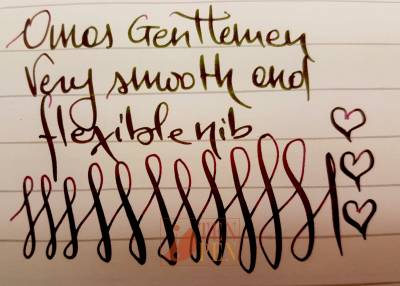 Omas Gentlemen
Very smooth and
flexible nib
TON
PEN